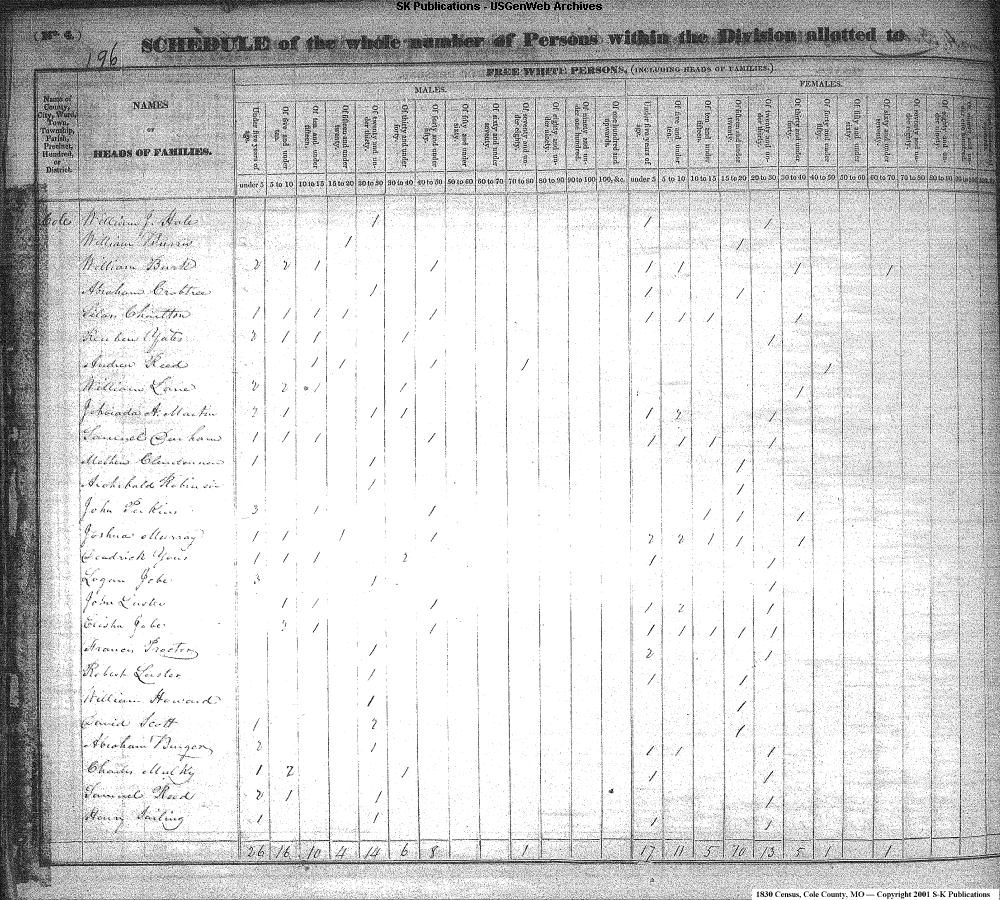 SK Publications - USGenWeb Archives
(No 4.)
196
SCHEDULE of the whole number of Persons within the Division allotted to
FREE WHITE PERSONS, (INCLUDING HEADS OF FAMILIES.)
MALES. FEMALES.
Name of County, City, Ward, Town, Township, Parish, Precinct, Hundred, or District.
NAMES
OF
HEADS OF FAMILIES.
under 5 5 to 10 10 to 15 15 to 20 20 to 30 30 to 40 40 to 50 50 to 60 60 to 70 70 to 80 80 to 90 90 to 100 100, &c. under 5 5 to 10 10 to 15 15 to 20 20 to 30 30 to 40 40 to 50 50 to 60 60 to 70 70 to 80 80 to 90
Cole William J. Hale 1 1 1
William 1 1
William Burk 2 2 1 1 1 1 1 1
Abraham Crabtree 1 1 1
Silas Charlton 1 1 1 1 1 1 1 1 1
Reuben Yates 2 1 1 1 1
Andrew Reed 1 1 1 1 1
William Lane 2 2 1 1 1
Jehoiada A. Martin 2 1 1 1 1 2 1
Samuel Durham 1 1 1 1 1 1 1 1
1 1 1
Archibald Robinson 1 1
John Perkins 3 1 1 1 1 1
Joshua Murray 1 1 1 1 2 2 1 1 1
1 1 1 2 1 1
Logan Jobe 3 1 1
John Luster 1 1 1 1 2 1
Elisha Jobe 2 1 1 1 1 1 1 1
Francis Proctor 1 2 1
Robert Luster 1 1 1
William Howard 1 1
David Scott 1 2 1
Abraham 2 1 1 1 1
Charles Mulky 1 2 1 1 1
Samuel Reed 2 1 1 1
Henry 1 1 1 1
26 16 10 4 14 6 8 1 17 11 5 10 13 5 1 1
1830 Census, Cole County, MO — Copyright 2001 S-K Publications